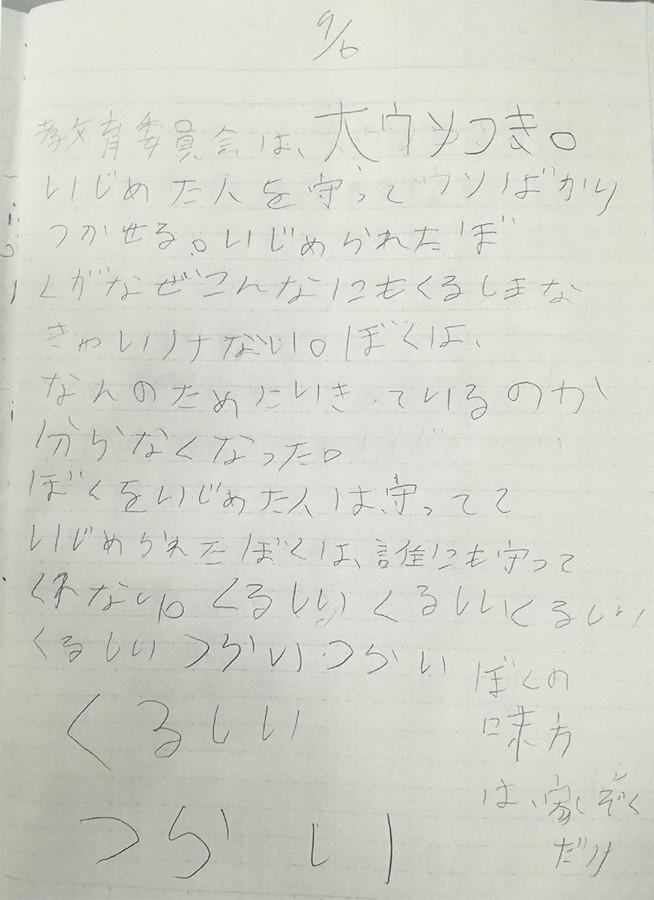 9/6
教育委員会は、大ウソつき。
いじめた人を守ってウソばかり
つかせる。いじめられたぼ
くがなぜこんなにもくるしまな
きゃいけない。ぼくは、
なんのためにいきているのか
分らなくなった。
ぼくをいじめた人は、守ってて
いじめられたぼくは、誰にも守って
くれない。くるしいくるしいくるしい
くるしいつらいつらい
くるしい
つらい
ぼくの
味方
は、家ぞく
だけ